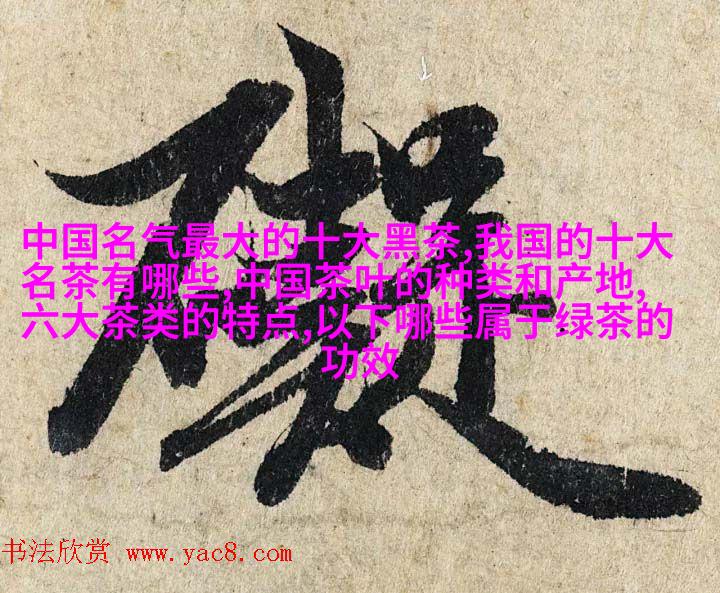 中国名气最大的十大黑茶,我国的十大
名茶有哪些,中国茶叶的种类和产地,
六大茶类的特点,以下哪些属于绿茶的
功效
书法欣赏 www.yac8.com